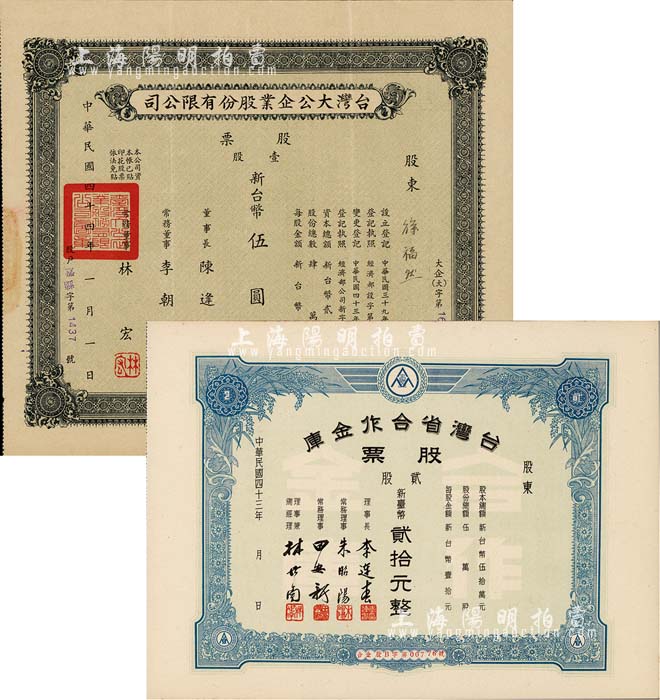 上海陽明拍賣
www.yangmingauction.com
司公限有份股業企公大灣台
股票
壹股
新台幣伍圓
股東 徐福然
大企(大)字第16
設立登記 中華民國三十九年
登記執照 經濟部設字第
變更登記 中華民國四十三年
登記執照 經濟部公司新字
資本總額 新台幣貳
股份總數 肆萬
每股金額 新台幣
董事長 陳逢
常務董事 李朝
常務董事 林宏
本公司資本帳已貼印花股票依法免貼
中華民國四十四年一月一日
字第1437號
上海陽明拍賣
www.yangmingauction.com
庫金作合省灣台
票股
貳股
新臺幣貳拾元整
股東
股本總額 新台幣伍拾萬元
股份總額 伍萬股
每股金額 新台幣壹拾元
理事長 李連春
常務理事 朱昭陽
常務理事 田安新
理事兼總經理 林世南
中華民國四十三年 月 日
合金股B字第00776號
上海陽明拍賣
www.yangmingauction.com